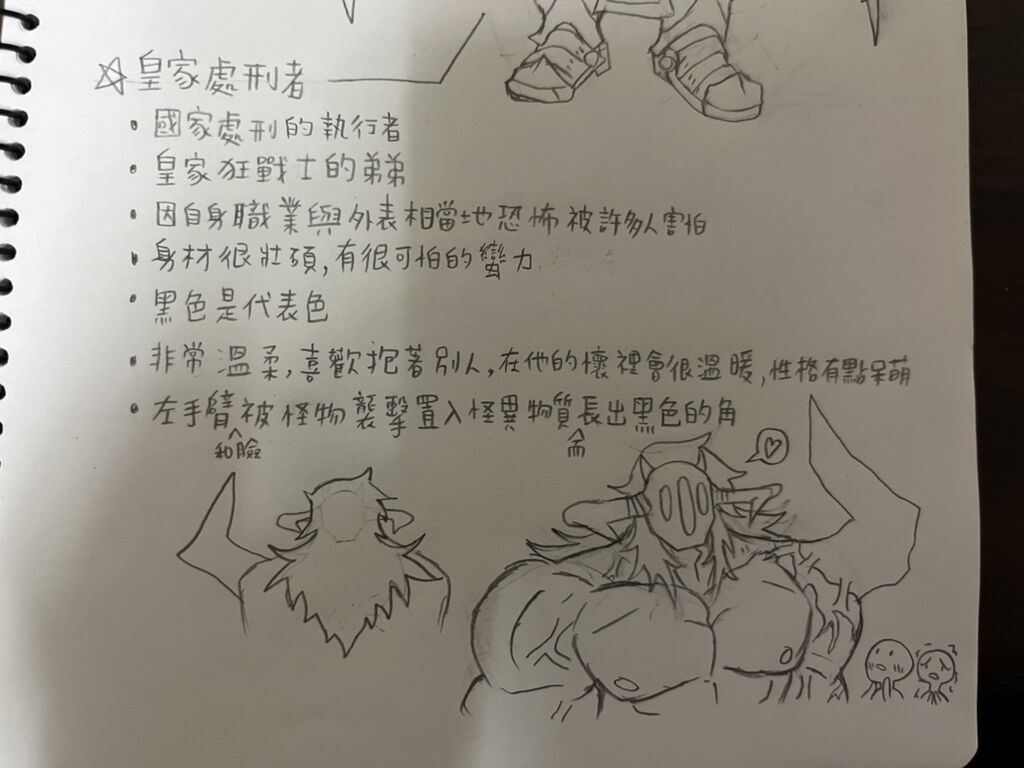 ☆皇家處刑者
• 國家處刑的執行者
• 皇家狂戰士的弟弟
• 因自身職業與外表相當地恐怖被許多人害怕
• 身材很壯碩,有很可怕的蠻力
• 黑色是代表色
• 非常溫柔,喜歡抱著別人,在他的懷裡會很溫暖,性格有點呆萌
• 左手臂被怪物襲擊置入怪異物質長出黑色的角
和臉 而